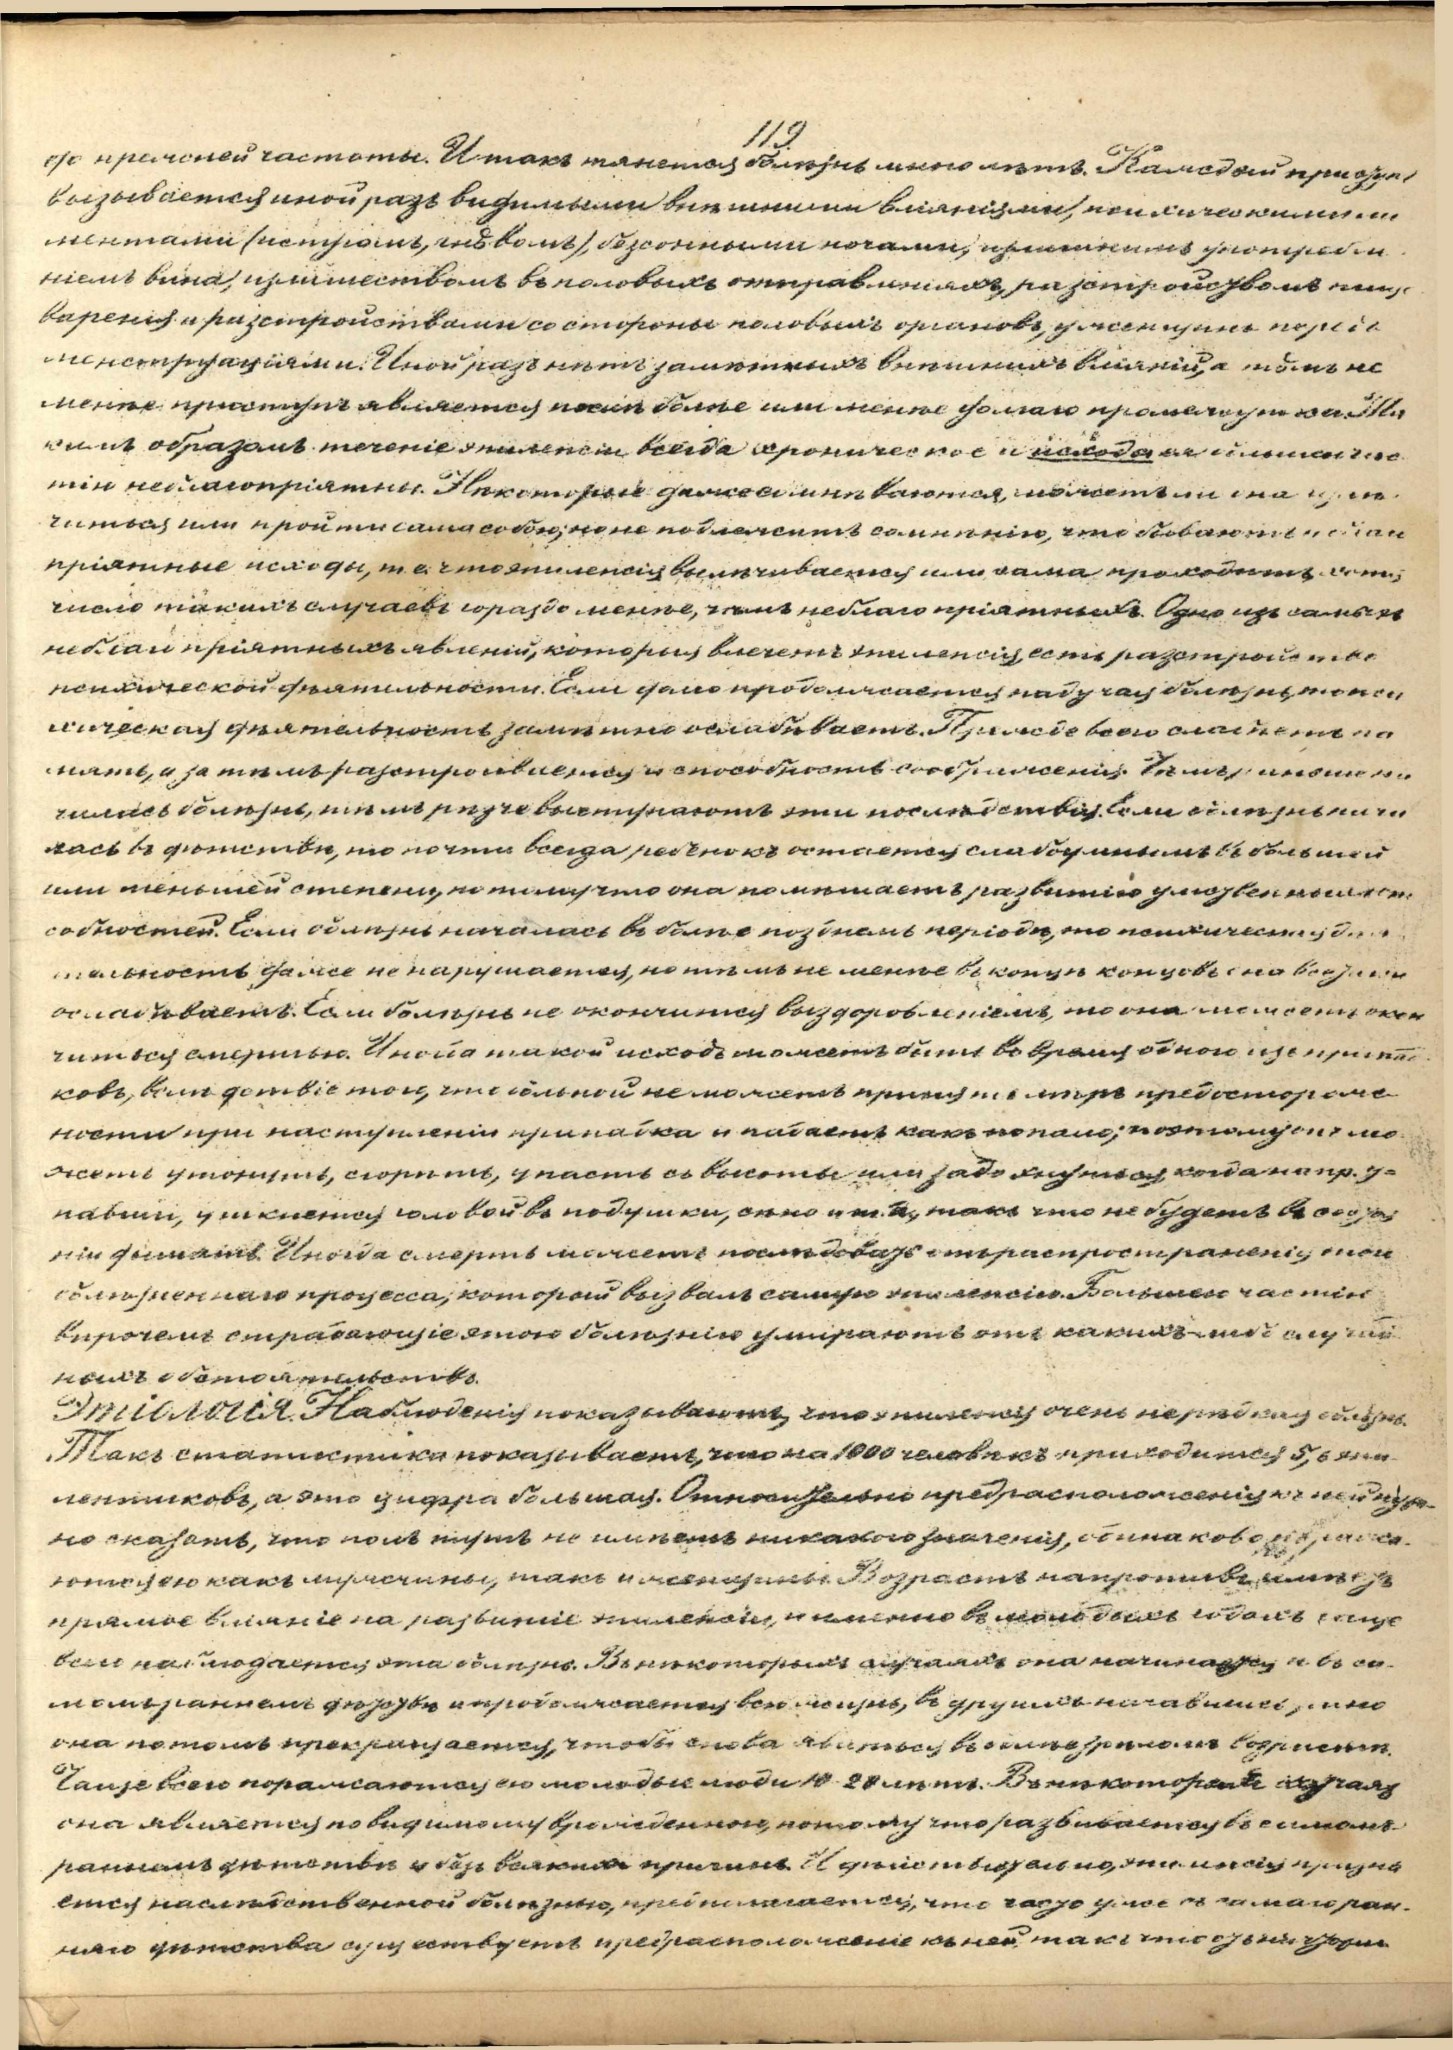 119
до прежней частоты. Итакъ тянется болѣзнь много лѣтъ. Каждый
вызывается иной разъ видимыми внѣшними вліяніями, психическими
ментами (испугомъ, гнѣвомъ), безсонными ночами, излишнимъ употребле
ніемъ вина, излишествомъ въ половыхъ отправленіяхъ, разстройствомъ пище
варенія и разстройствами со стороны половыхъ органовъ, у женщинъ передъ
менструаціями. Иной разъ нѣтъ замѣтныхъ внѣшнихъ вліяній, а тѣмъ не
менѣе приступъ является послѣ болѣе или менѣе долгаго промежутка. Та
кимъ образомъ теченіе эпилепсіи всегда хроническое и исхода ея большею час
тію неблагопріятны. Нѣкоторые даже сомнѣваются, можетъ ли она излѣ
читься или пройти сама собою; но не подлежитъ сомнѣнію, что бываютъ и благо
пріятные исходы, т. е. что эпилепсія вылѣчивается или сама проходитъ, хотя
число такихъ случаевъ гораздо менѣе, чѣмъ неблагопріятныхъ. Одно изъ самыхъ
неблагопріятныхъ явленій, которыя влечетъ эпилепсія, есть разстройство
психической дѣятельности. Если долго продолжается падучая болѣзнь, то пси
хическая дѣятельность замѣтно ослабѣваетъ. Прежде всего слабѣетъ па
мять, а затѣмъ разстроивается и способность соображенія. Чѣмъ раньше на
чалась болѣзнь, тѣмъ рѣзче выступаютъ эти послѣдствія. Если болѣзнь нача
лась въ дѣтствѣ, то почти всегда ребенокъ остается слабоумнымъ въ большей
или меньшей степени, потому что она помѣшаетъ развитію умственныхъ спо
собностей. Если болѣзнь началась въ болѣе позднемъ періодѣ, то психическая дѣя
тельность даже не нарушается, но тѣмъ не менѣе въ концѣ концовъ она
ослабѣваетъ. Если болѣзнь не окончится выздоровленіемъ, то она можетъ окон
читься смертью. Иногда такой исходъ можетъ быть во время одного изъ припад
ковъ, вслѣдствіе того, что больной не можетъ принять мѣръ предосторож
ности при наступленіи припадка и падаетъ какъ попало; поэтому онъ мо
жетъ утонуть, сгорѣть, упасть съ высоты или задохнуться, когда напр. у-
павши, уткнется головой въ подушки, сѣно и т. д., такъ что не будетъ въ состоя
ніи дышать. Иногда смерть можетъ послѣдовать отъ распространенія того
болѣзненнаго процесса, который вызвалъ самую эпилепсію. Большею частію
впрочемъ страдающіе этою болѣзнію умираютъ отъ какихъ-либо случай
ныхъ обстоятельствъ.
Этіологія. Наблюденія показываютъ, что эпилепсія очень нерѣдкая болѣзнь.
Такъ статистика показываетъ, что на 1000 человѣкъ приходится 5, 6 эпи
лептиковъ, а это цифра большая. Относительно предрасположенія къ ней нуж-
но сказать, что полъ тутъ не имѣетъ никакого значенія, одинаково поража-
ются ею какъ мужчины, такъ и женщины. Возрастъ напротивъ имѣетъ
прямое вліяніе на развитіе эпилепсіи, и именно въ молодыхъ годахъ чаще
всего наблюдается эта болѣзнь. Въ нѣкоторыхъ случаяхъ она начинается и въ са-
момъ раннемъ дѣтствѣ и продолжается всю жизнь, въ другихъ начавшись рано
она потомъ прекращается, чтобы снова явиться въ болѣе зрѣломъ возрастѣ.
Чаще всего поражаются ею молодые люди 10-20 лѣтъ. Въ нѣкоторыхъ случаяхъ
она является повидимому врожденною, потому что развивается въ самомъ
раннемъ дѣтствѣ и безъ всякихъ причинъ. И дѣйствительно, эпилепсія призна
ется наслѣдственной болѣзнью, предполагается, что часто уже съ самаго ран-
няго дѣтства существуетъ предрасположеніе къ ней, такъ что